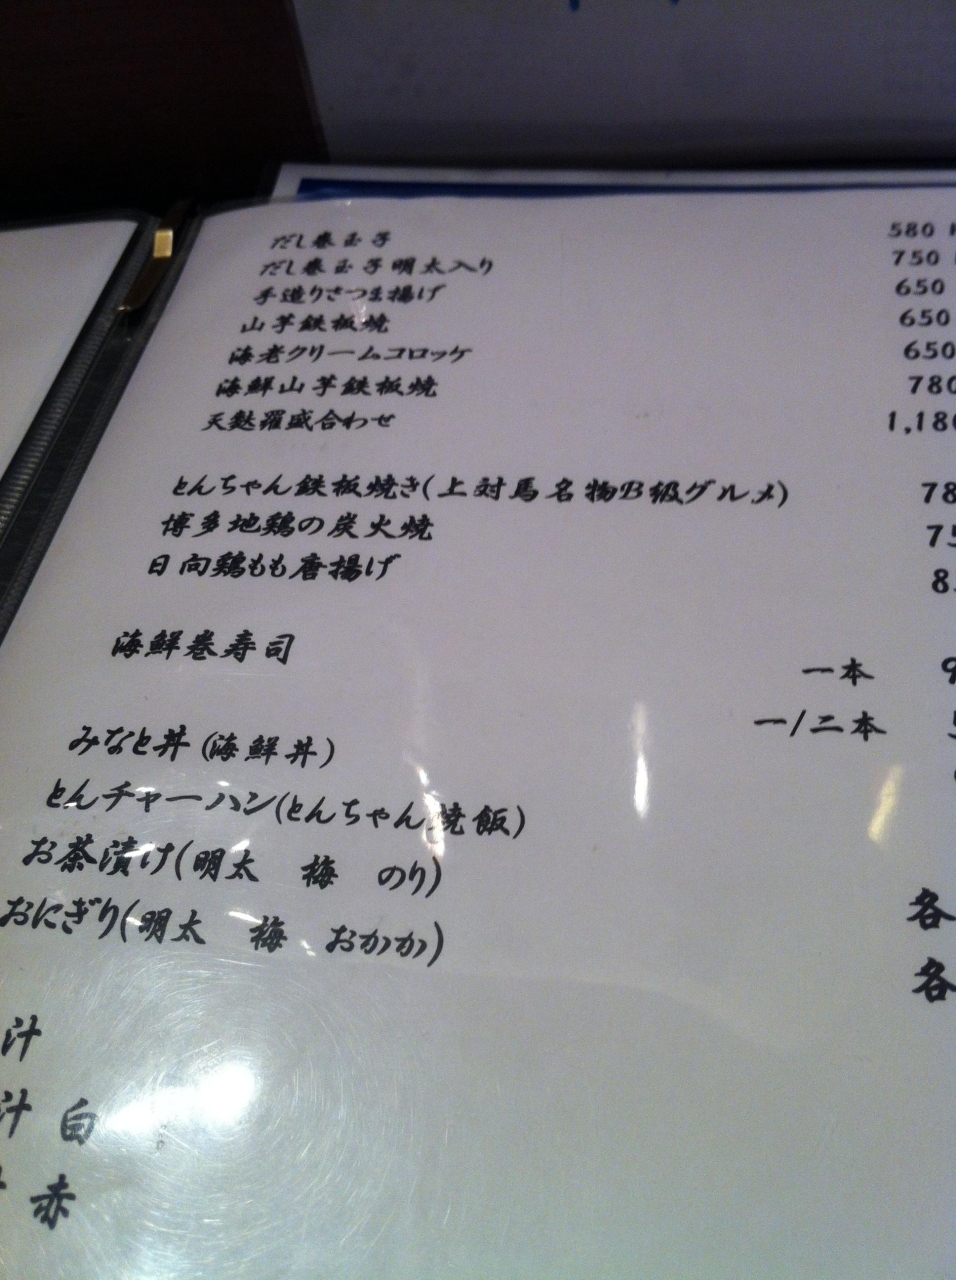 だし巻玉子 580
だし巻玉子明太入り 750
手造りさつま揚げ 650
山芋鉄板焼 650
海老クリームコロッケ 650
海鮮山芋鉄板焼 780
天麩羅盛合わせ 1,180
とんちゃん鉄板焼き(上対馬名物B級グルメ) 78
博多地鶏の炭火焼 75
日向鶏もも唐揚げ 8
海鮮巻寿司 一本 9
一/二本 5
みなと丼(海鮮丼)
とんチャーハン(とんちゃん焼飯)
お茶漬け(明太 梅 のり) 各
おにぎり(明太 梅 おかか) 各
汁
汁 白
赤